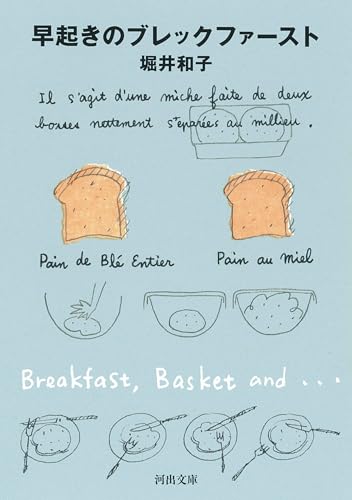 早起きのブレックファースト
堀井和子
Il s'agit d'une miche faite de deux
bosses nettement s'eparées au millieu.
Pain de Blé Entier
Pain au miel
Breakfast, Basket and...
河出文庫